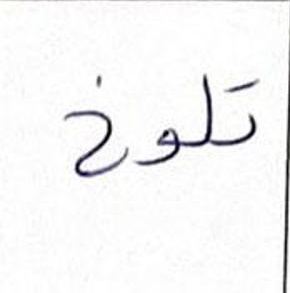 تلوخ